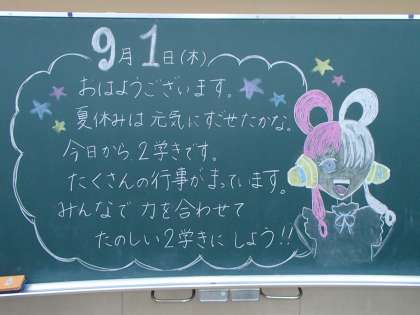 9月1日(木)
おはようございます。
夏休みは元気にすごせたかな。
今日から2学きです。
たくさんの行事がまっています。
みんなで力を合わせて
たのしい2学きにしよう!!